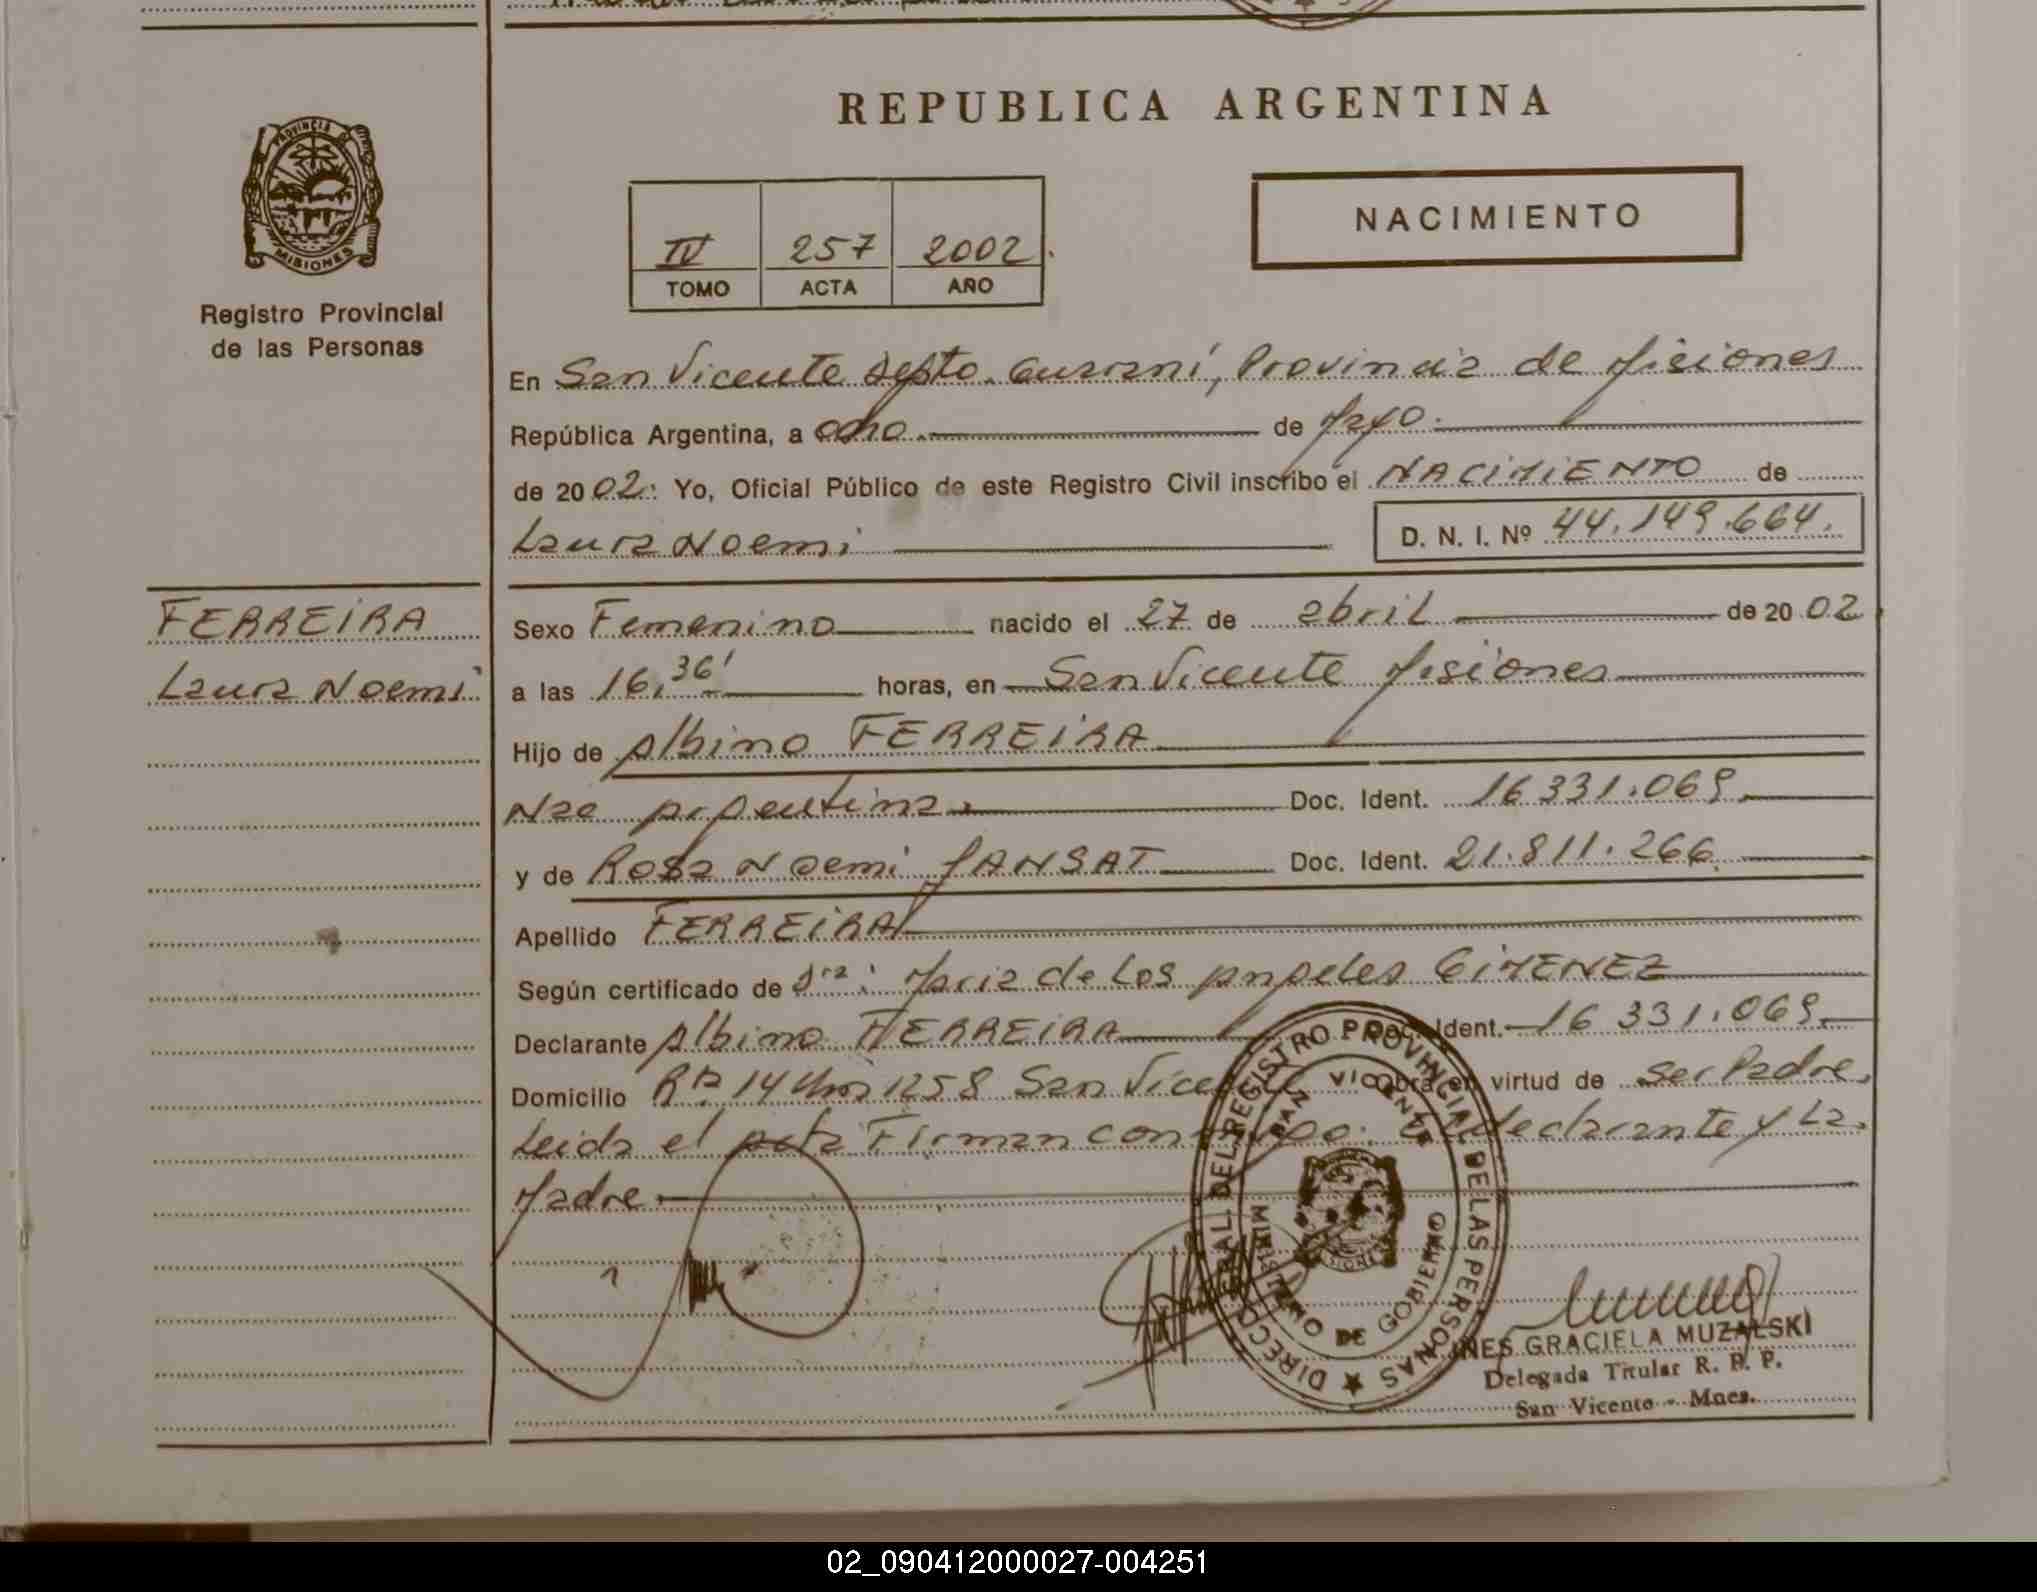 REPUBLICA ARGENTINA
PROVINCIA DE
MISIONES
Registro Provincial
de las Personas
IV 257 2002.
TOMO ACTA AÑO
NACIMIENTO
En San Vicente Depto. Guaraní, Provincia de Misiones
República Argentina, a ocho. de Mayo.
de 2002. Yo, Oficial Público de este Registro Civil inscribo el NACIMIENTO de
Laura Noemi D. N. I. Nº 44.149.664.
FERREIRA
Laura Noemi
Sexo Femenino nacido el 27 de abril de 2002
a las 16,36' horas, en San Vicente Misiones
Hijo de Albino FERREIRA
Nac Argentina. Doc. Ident. 16 331.069.
y de Rosa Noemi JANSAT Doc. Ident. 21.811.266
Apellido FERREIRA
Según certificado de Dra: Maria de Los Angeles GIMENEZ
Declarante Albino FERREIRA Doc. Ident. 16 331.069.
Domicilio Rta 14 Km 1258 San Vicente Obra en virtud de ser Padre.
Leida el Acta Firman conmigo: El declarante y La
Madre.
DIRECC. GRAL. DEL REGISTRO PROVINCIAL DE LAS PERSONAS
VICENTE
MINISTERIO DE GOBIERNO
INES GRACIELA MUZALSKI
Delegada Titular R. P. P.
San Vicente - Mnes.
02_090412000027-004251